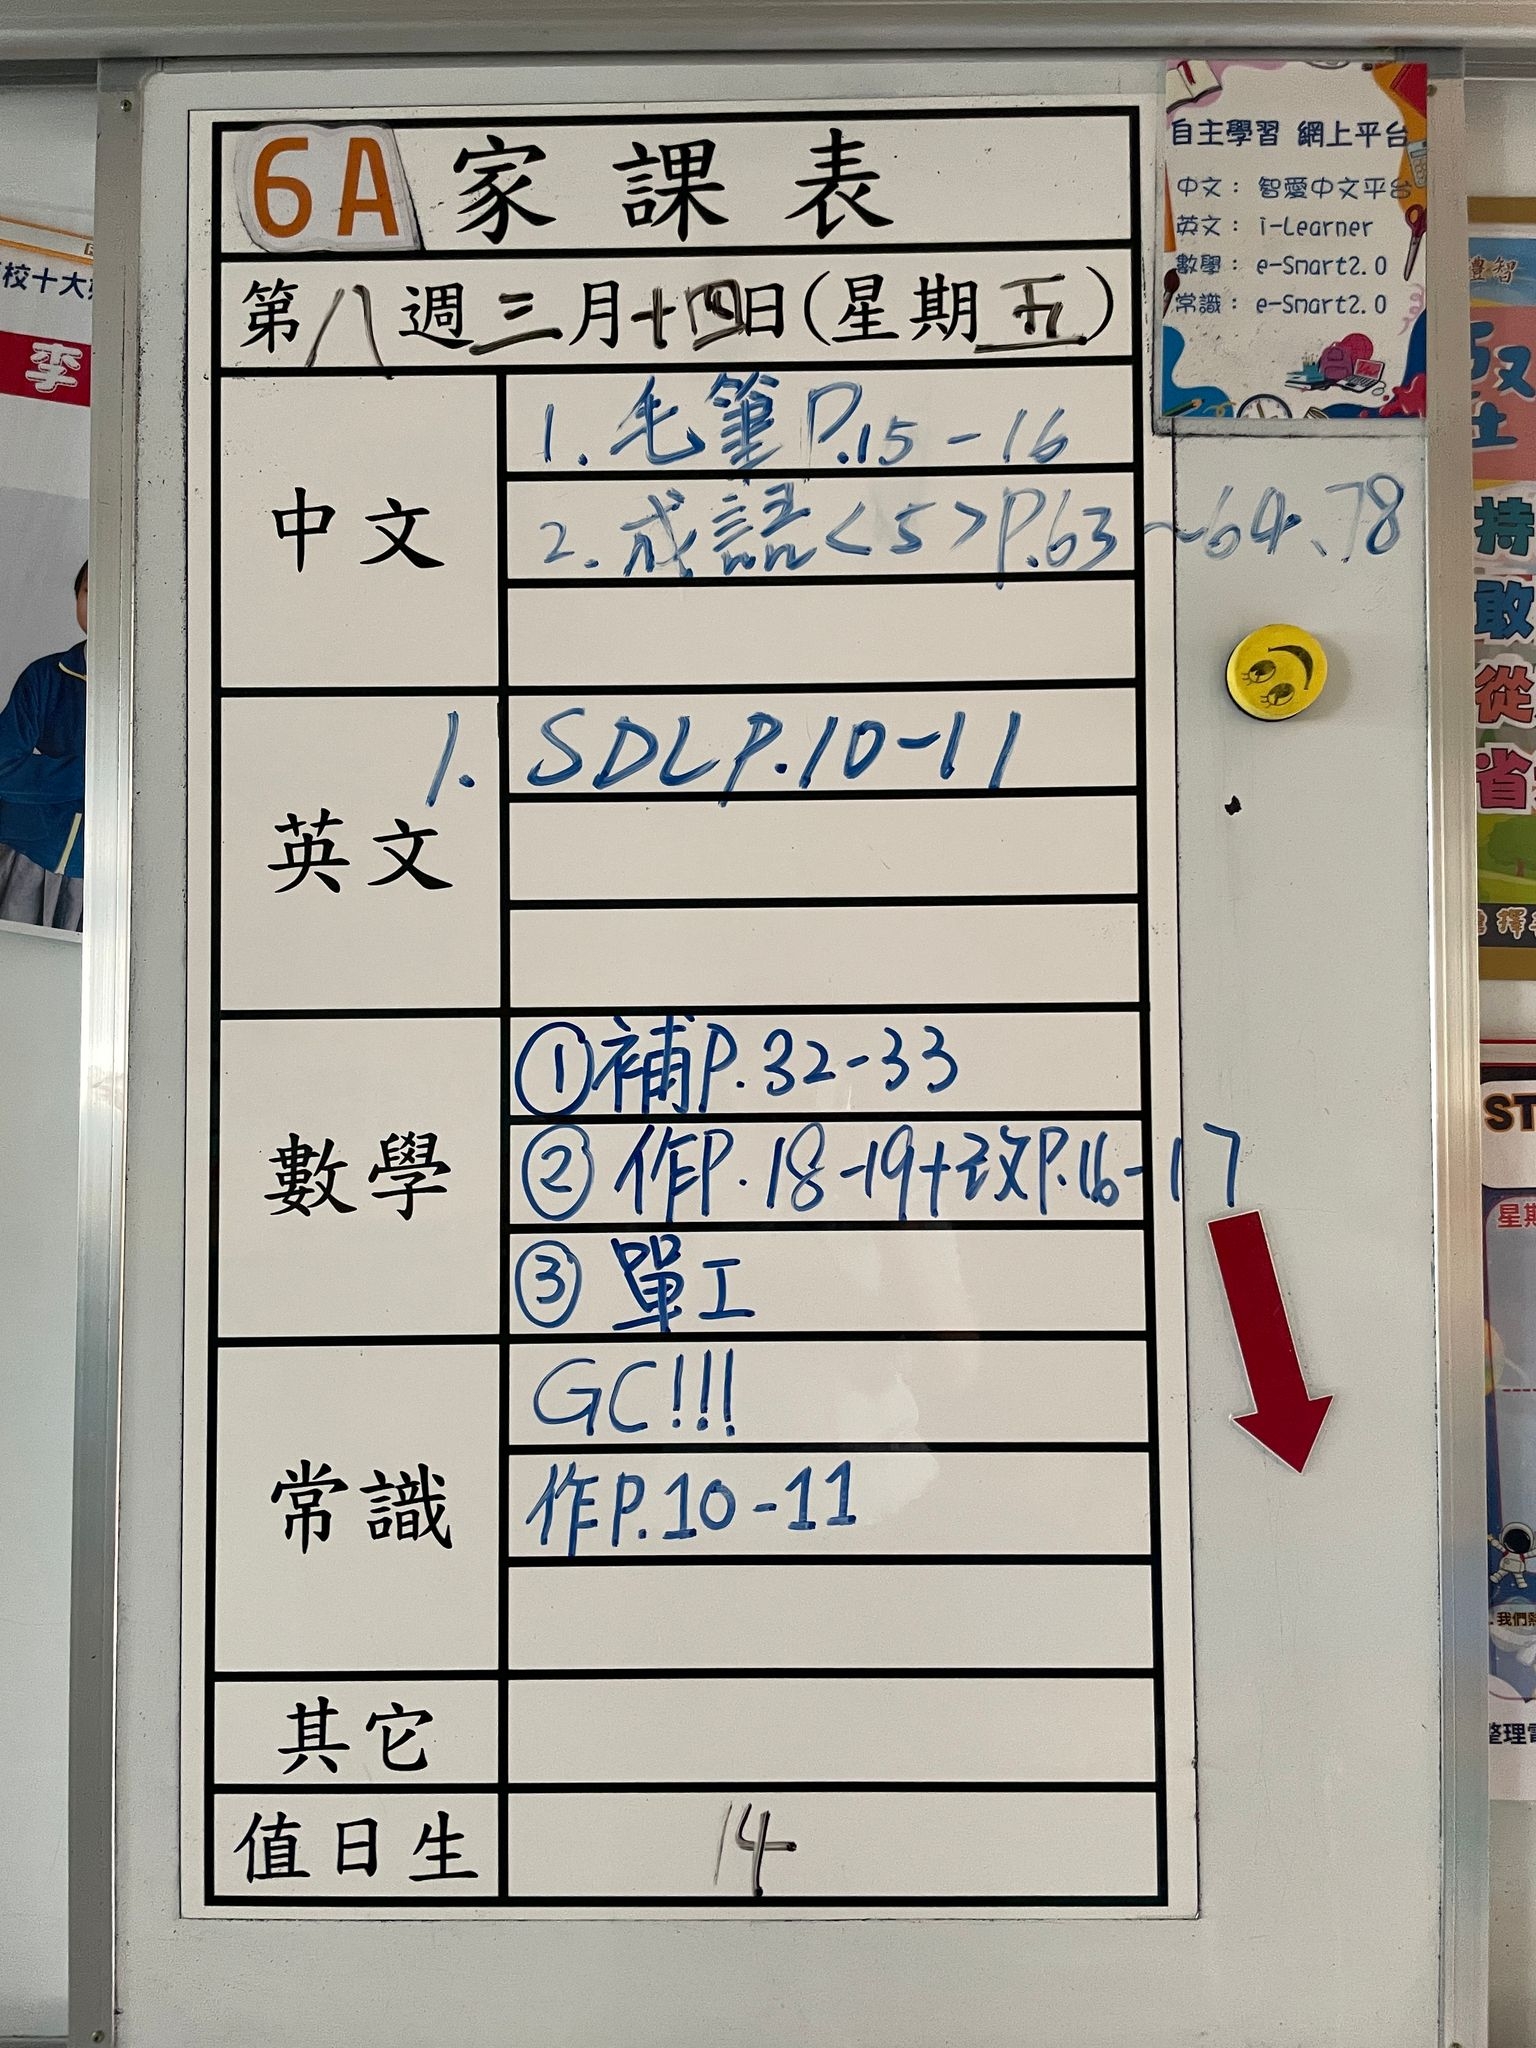 6A 家課表
第八週三月十四日(星期五)
中文
1. 毛筆P.15-16
2. 成語<5>P.63~64、78
英文
1. SDL P.10-11
數學
①補P.32-33
②作P.18-19+改P.16-17
③單工
常識
GC!!!
作P.10-11
其它
值日生
14
自主學習 網上平台
中文： 智愛中文平台
英文： i-Learner
數學： e-Smart2.0
常識： e-Smart2.0
校十大
李
禮智
持
敢
從
省
擇
ST
星期
我們熱
整理電